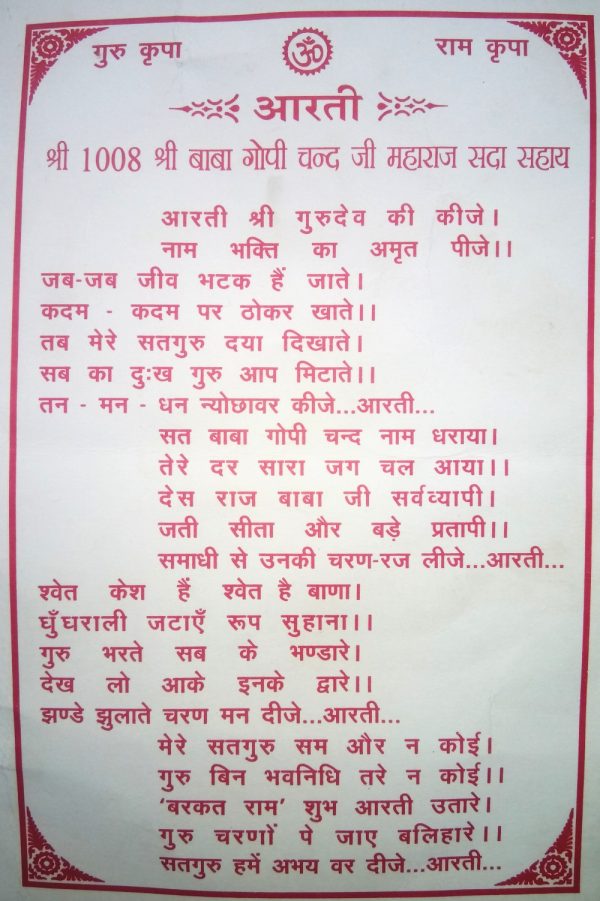 गुरु कृपा ॐ राम कृपा
आरती
श्री 1008 श्री बाबा गोपी चन्द जी महाराज सदा सहाय
आरती श्री गुरुदेव की कीजे।
नाम भक्ति का अमृत पीजे।।
जब-जब जीव भटक हैं जाते।
कदम - कदम पर ठोकर खाते।।
तब मेरे सतगुरु दया दिखाते।
सब का दुःख गुरु आप मिटाते।।
तन - मन - धन न्योछावर कीजे...आरती...
सत बाबा गोपी चन्द नाम धराया।
तेरे दर सारा जग चल आया।।
देस राज बाबा जी सर्वव्यापी।
जती सीता और बड़े प्रतापी।।
समाधी से उनकी चरण-रज लीजे...आरती...
श्वेत केश हैं श्वेत है बाणा।
घुँघराली जटाएँ रूप सुहाना।।
गुरु भरते सब के भण्डारे।
देख लो आके इनके द्वारे।।
झण्डे झुलाते चरण मन दीजे...आरती...
मेरे सतगुरु सम और न कोई।
गुरु बिन भवनिधि तरे न कोई।।
'बरकत राम' शुभ आरती उतारे।
गुरु चरणों पे जाए बलिहारे।।
सतगुरु हमें अभय वर दीजे...आरती...